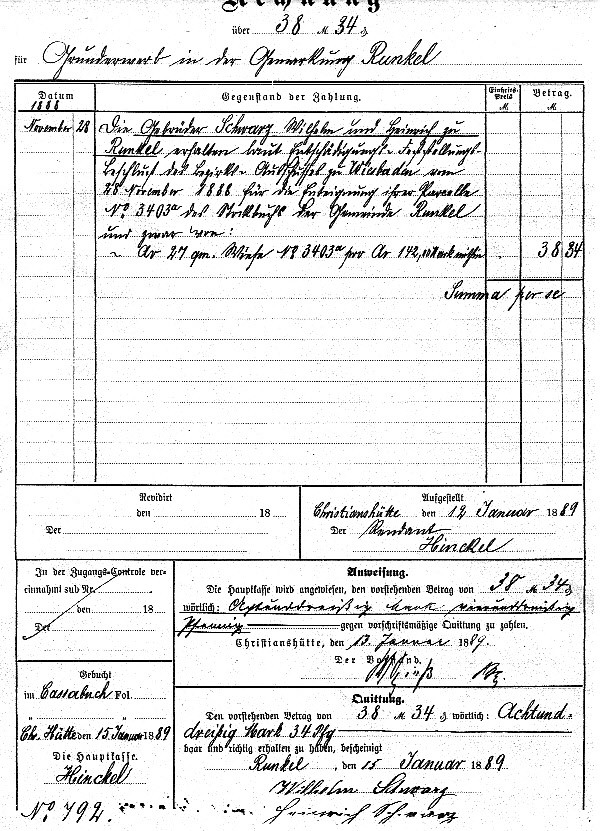 Rechnung
über 38 M 34 ₰
für Grunderwerb in der Gemarkung Runkel
Datum 1888 Gegenstand der Zahlung. Einheits-Preis M. Betrag. M.
November 28 Die Gebrüder Schwarz Wilhelm und Heinrich zu
Runkel erhalten laut Entschädigungs-Feststellungs-
beschluß des Bezirks-Ausschusses zu Wiesbaden vom
28 November 1888 für die Enteignung ihrer Parcelle
No 3403a des Stockbuchs der Gemeinde Runkel
und zwar von:
- Ar 27 qm. Wiese No 3403a pro Ar 142, Mark mithin 38 34
Summa per se
Revidirt
den 18
Der
Aufgestellt
Christianshütte den 12 Januar 1889
Der Rendant
Hinckel
In der Zugangs-Controle ver-
einnahmt sub Nr.
den 18
Der
Anweisung.
Die Hauptkasse wird angewiesen, den vorstehenden Betrag von 38 M 34 ₰
wörtlich: Achtunddreißig Mark vierunddreißig
Pfennig gegen vorschriftsmäßige Quittung zu zahlen.
Christianshütte, den 13. Januar 1889.
Der Vorstand.
Gebucht
im Cassabuch Fol.
Chr. Hütte den 15 Januar 1889
Die Hauptkasse.
Hinckel
Quittung.
Den vorstehenden Betrag von 38 M 34 ₰ wörtlich: Achtund-
dreißig Mark 34 Pfg
baar und richtig erhalten zu haben, bescheinigt
Runkel, den 15 Januar 1889
Wilhelm Schwarz
Heinrich Schwarz
No 792.